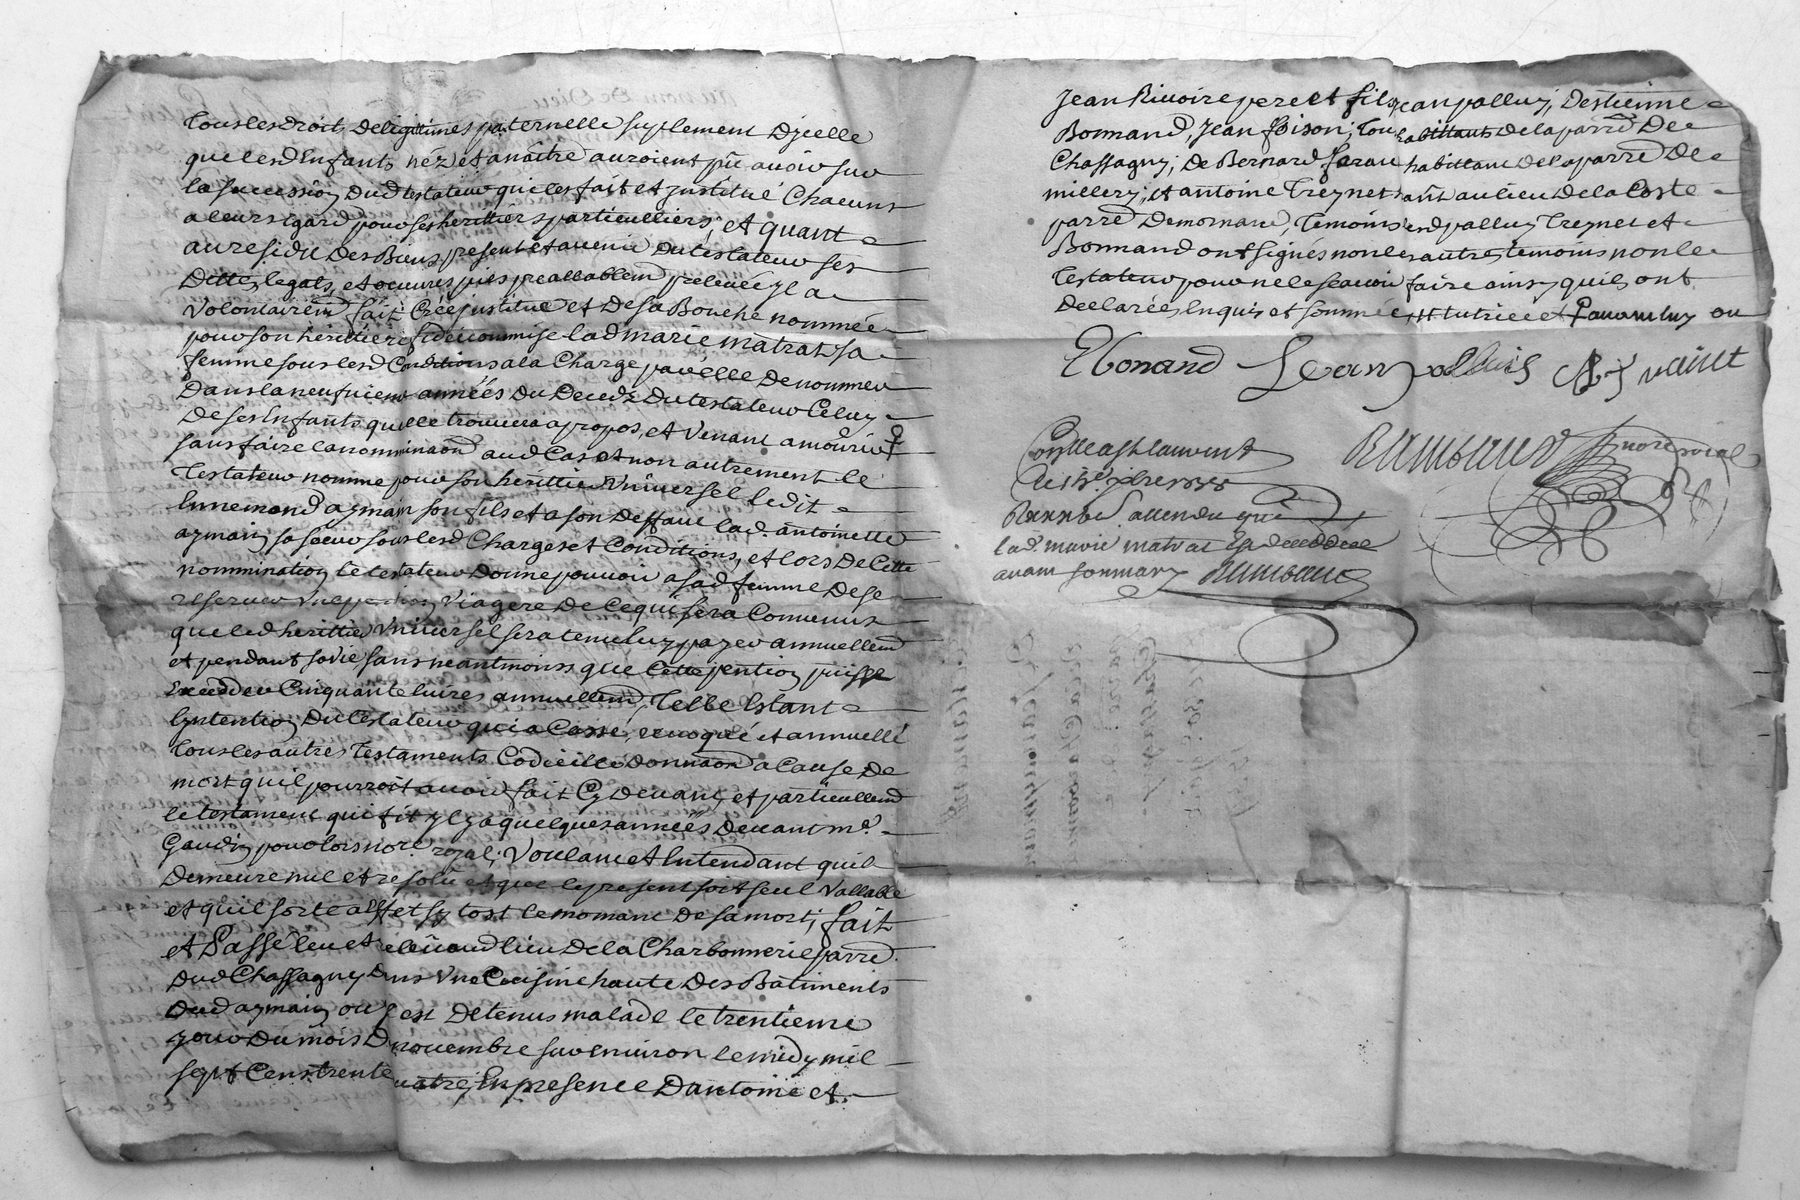 Tous les droits de legittimes paternelle suplement d'jcelle
que lesd Enfants néz et a naitre auroient pû avoir sur
la succession dud testateur qui les fait et jnstitué chacuns
a leurs egard pour ses herittiers particulliers, et quant
au residu des Biens presents et avenir du testateur ses
dettes, legats, et oeuvres pies preallablemt prelevée yl a
volontairemt fait Créé jnstitue et de sa Bouche nommée
pour son herittiere fideicommise lad marie matrat sa
femme sous lesd Conditions a la Charge par elle de nommer
dans la neufviem années du Decedz du testateur Celuy
de ses Enfants quelle trouvera a propos, et venant a mourir
sans faire la nominaon aud Cas et non autrement le
Testateur nomme pour son herittier vniversel ledit
Ennemond aymain son fils et a son deffaut lad. antoinette
aymain sa soeur sous lesd Charges et Conditions, et lors de Cette
nommination le testateur donne pouvoir a sad femme de se
reserver vne pention viagere de ce qui sera Convenus
que led herittier vniversel sera tenu luy payer annuellemd
et pendant sa vie, sans neantmoins que Cette pention puisse
Exceder Cinquante livres annuellemd, Telle Estant
lyntention du testateur qui a Cassé, revoqué et annullé
tous les autres Testaments Codicille donnaon a Cause de
mort quil pourroit avoir fait Cy devant, et particullemd
le testament qui fit yl y a quelques années devant me.
Gaudin pour lors nore. royal, voulant et Entendant quil
demeure nul et resolu et que le present soit seul vallable
et quil sorte a Effet sy tost le momant de sa mort; fait
et Passé leu et releu aud lieu de la Charbonnerie parred.
dud Chassagny dans vne Cuisine haute des Batiments
dud aymain ou yl est detenus malade le trentieme
jour du mois de novembre sur environ le midy mil
sept Cens trente quatre, En presence d'antoine et
Jean Rivoire pere et fils, jean palluy, d'estienne
Bonnand, Jean foison, tous habittants de la parred de
Chassagny, de Bernard habittant de la parred de
millery, et antoine Treynet au lieu de la Coste
parred de mornant, Temoins lesd palluy Treynet et
Bonnand ont signés non les autres temoins non le
Testateur pour ne le scavoir faire ainsy quils ont
declarés Enquis et sommés
EBonand Jean palluis
Rambaud nore roial
lad. marie matrat est decedée
avant son mary Rambaud